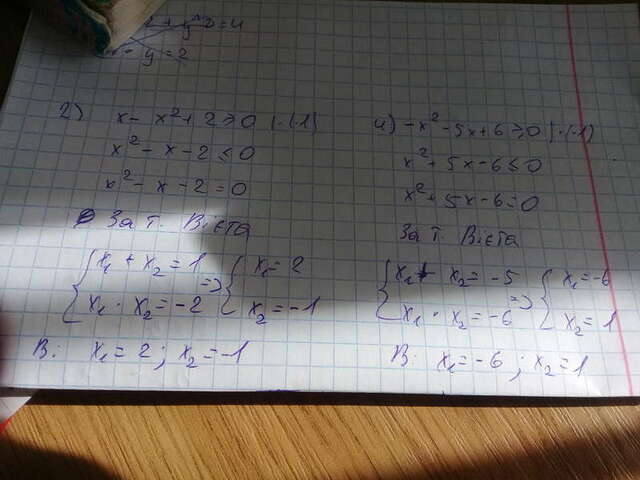 y² = 4
y = 2
2) x - x² + 2 ≥ 0 | · (-1)
x² - x - 2 ≤ 0
x² - x - 2 = 0
За т. Вієта
{ x₁ + x₂ = 1 => { x₁ = 2
x₁ · x₂ = -2 x₂ = -1
В: x₁ = 2 ; x₂ = -1
4) -x² - 5x + 6 ≥ 0 | · (-1)
x² + 5x - 6 ≤ 0
x² + 5x - 6 = 0
За т. Вієта
{ x₁ + x₂ = -5 => { x₁ = -6
x₁ · x₂ = -6 x₂ = 1
В: x₁ = -6 ; x₂ = 1